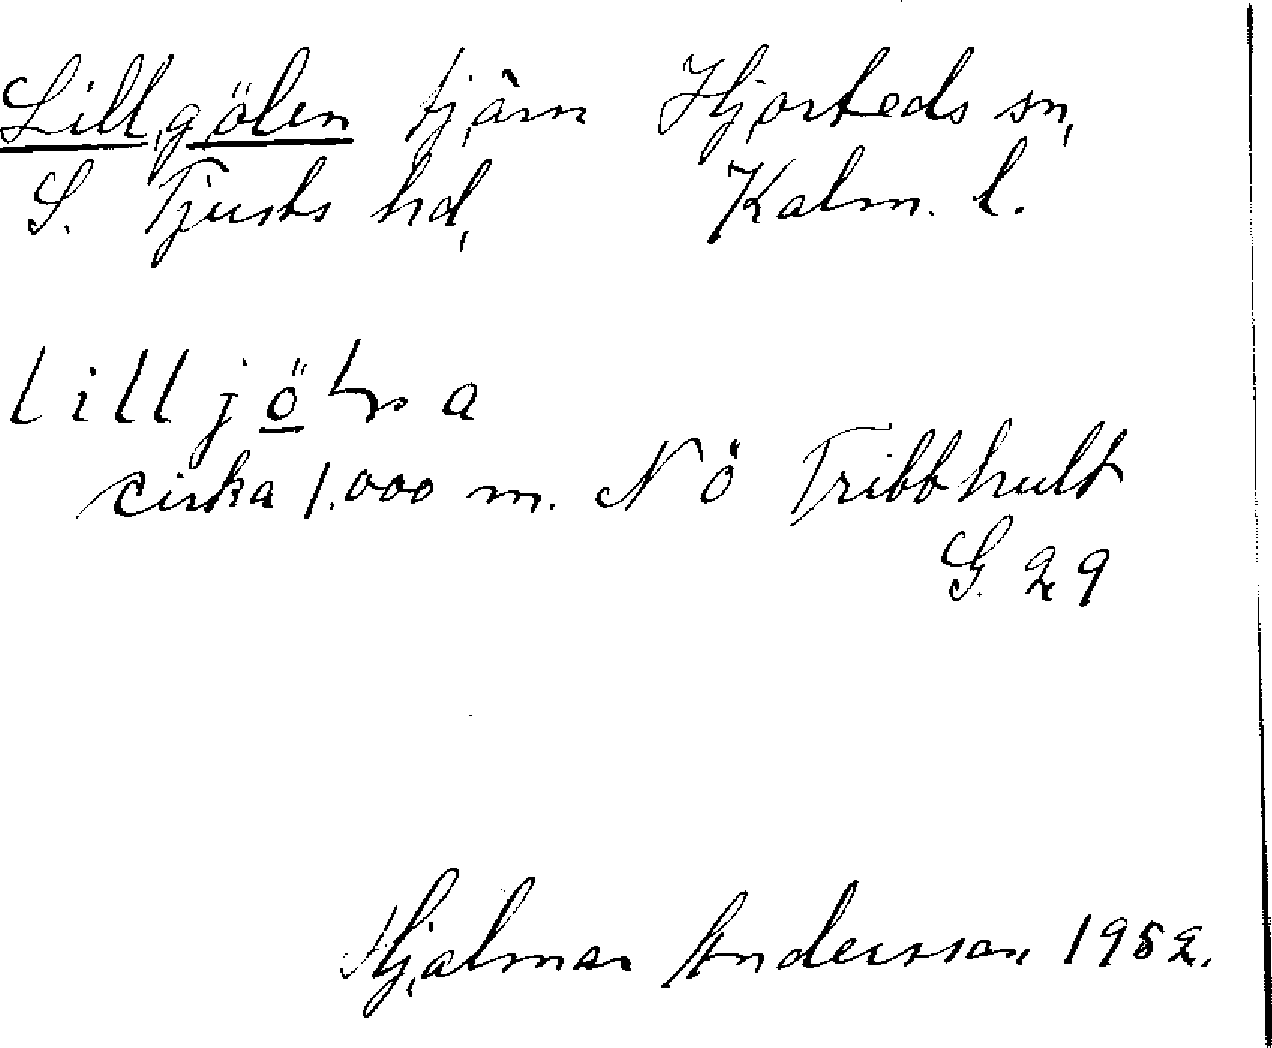 Lillgölen tjärn Hjorteds sn,
S. Tjusts hd, Kalm. l.
cirka 1.000 m. N ö Tribbhult
G. 29
Hjalmar Andersson 1952.